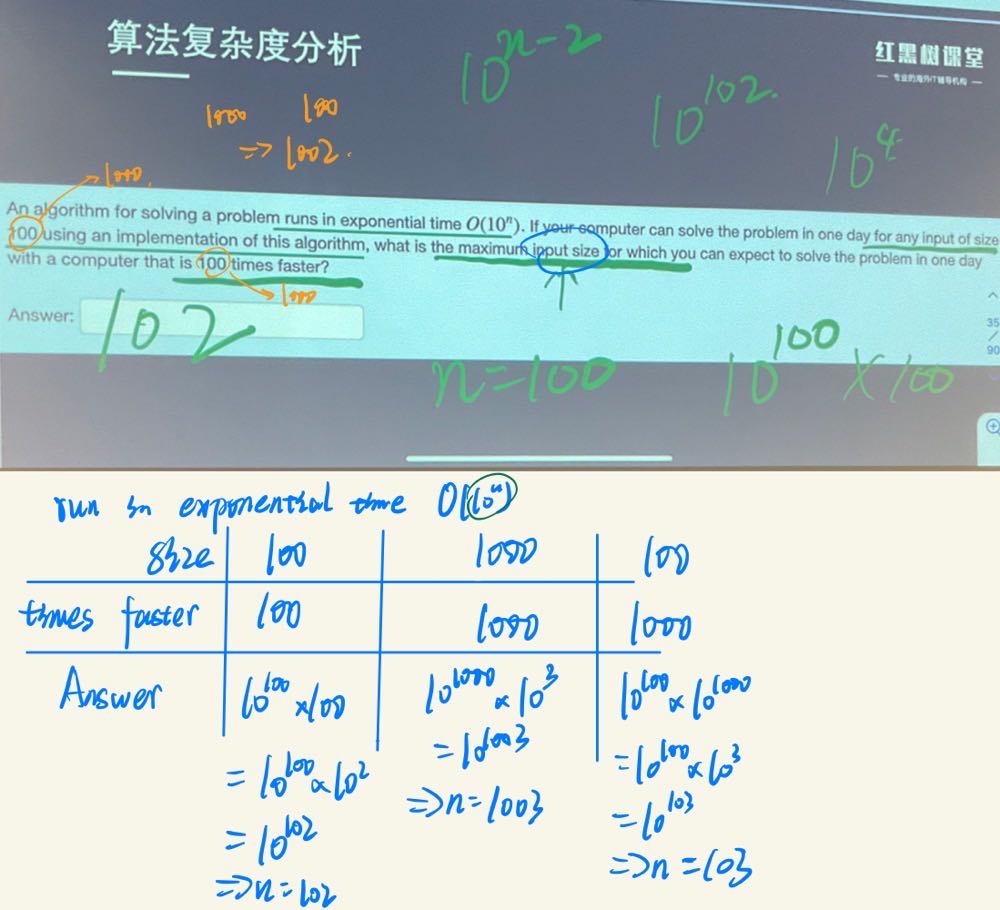 算法复杂度分析
10^{n-2}
红黑树课堂
— 专业的海外IT辅导机构 —
1000 100
=> 1002.
10^{102}.
10^{4}
1000.
An algorithm for solving a problem runs in exponential time O(10^n). If your computer can solve the problem in one day for any input of size
100 using an implementation of this algorithm, what is the maximum input size for which you can expect to solve the problem in one day
with a computer that is 100 times faster?
1000
Answer: 102
35
/
90
n=100
10^{100} × 100
run in exponential time O(10^n)
size 100 1000 100
times faster 100 1000 1000
Answer 10^{100} × 100 10^{1000} × 10^3 10^{100} × 10^{1000}
= 10^{100} × 10^2 = 10^{1003} = 10^{100} × 10^3
= 10^{102} => n = 1003 = 10^{103}
=> n = 102 => n = 103